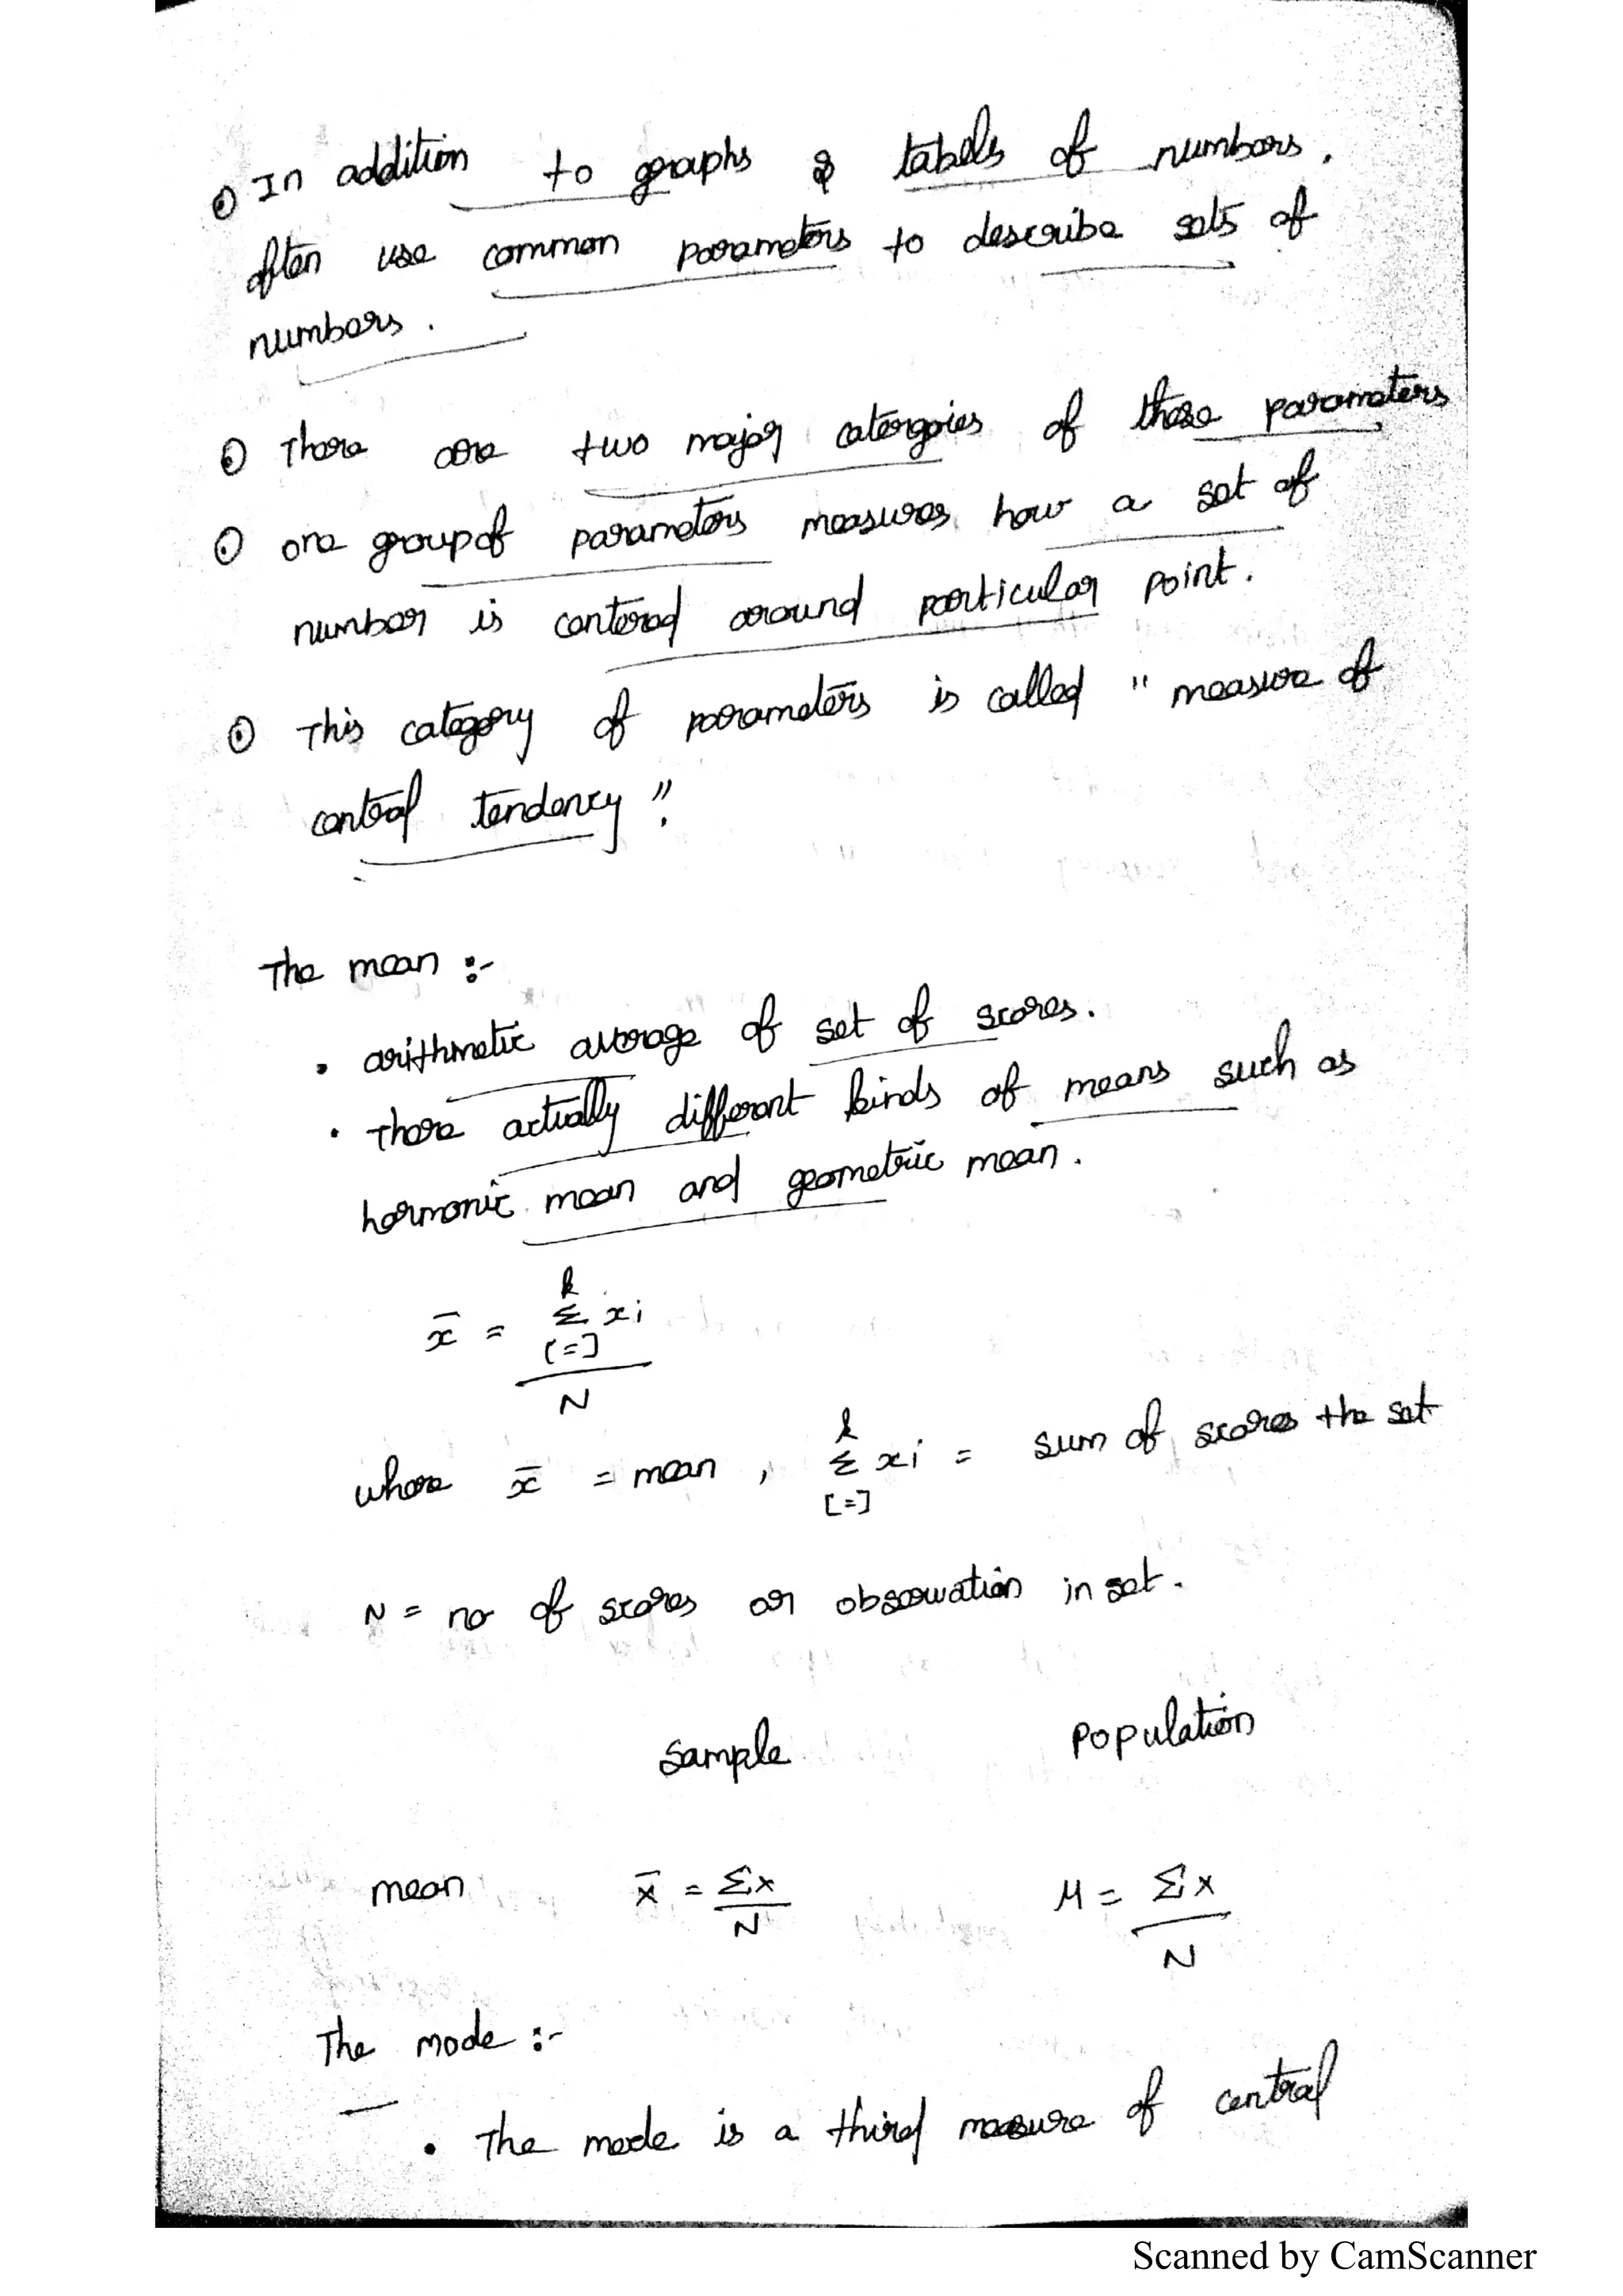 ⊙ In addition to graphs & tabels of numbers,
often use common parameters to describe sets of
numbers.
⊙ There are two major catergories of these parameters
⊙ one group of parameters measures how a set of
number is centered around particular point.
⊙ This category of parameters is called "measure of
central tendency".
The mean :-
• arithmetic average of set of scores.
• There actually different kinds of means such as
harmonic mean and geometric mean.
k
x̄ = Σ xi
[=]
N
where x̄ = mean, k Σ xi = sum of scores the set
[=]
N = no of scores or observation in set.
Sample Population
mean x̄ = Σx / N μ = Σx / N
The mode :-
• The mode is a third measure of central
Scanned by CamScanner